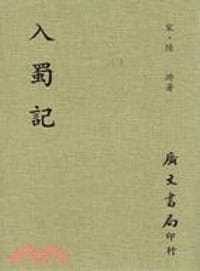 宋・陸游著
入蜀記
廣文書局印行
三民